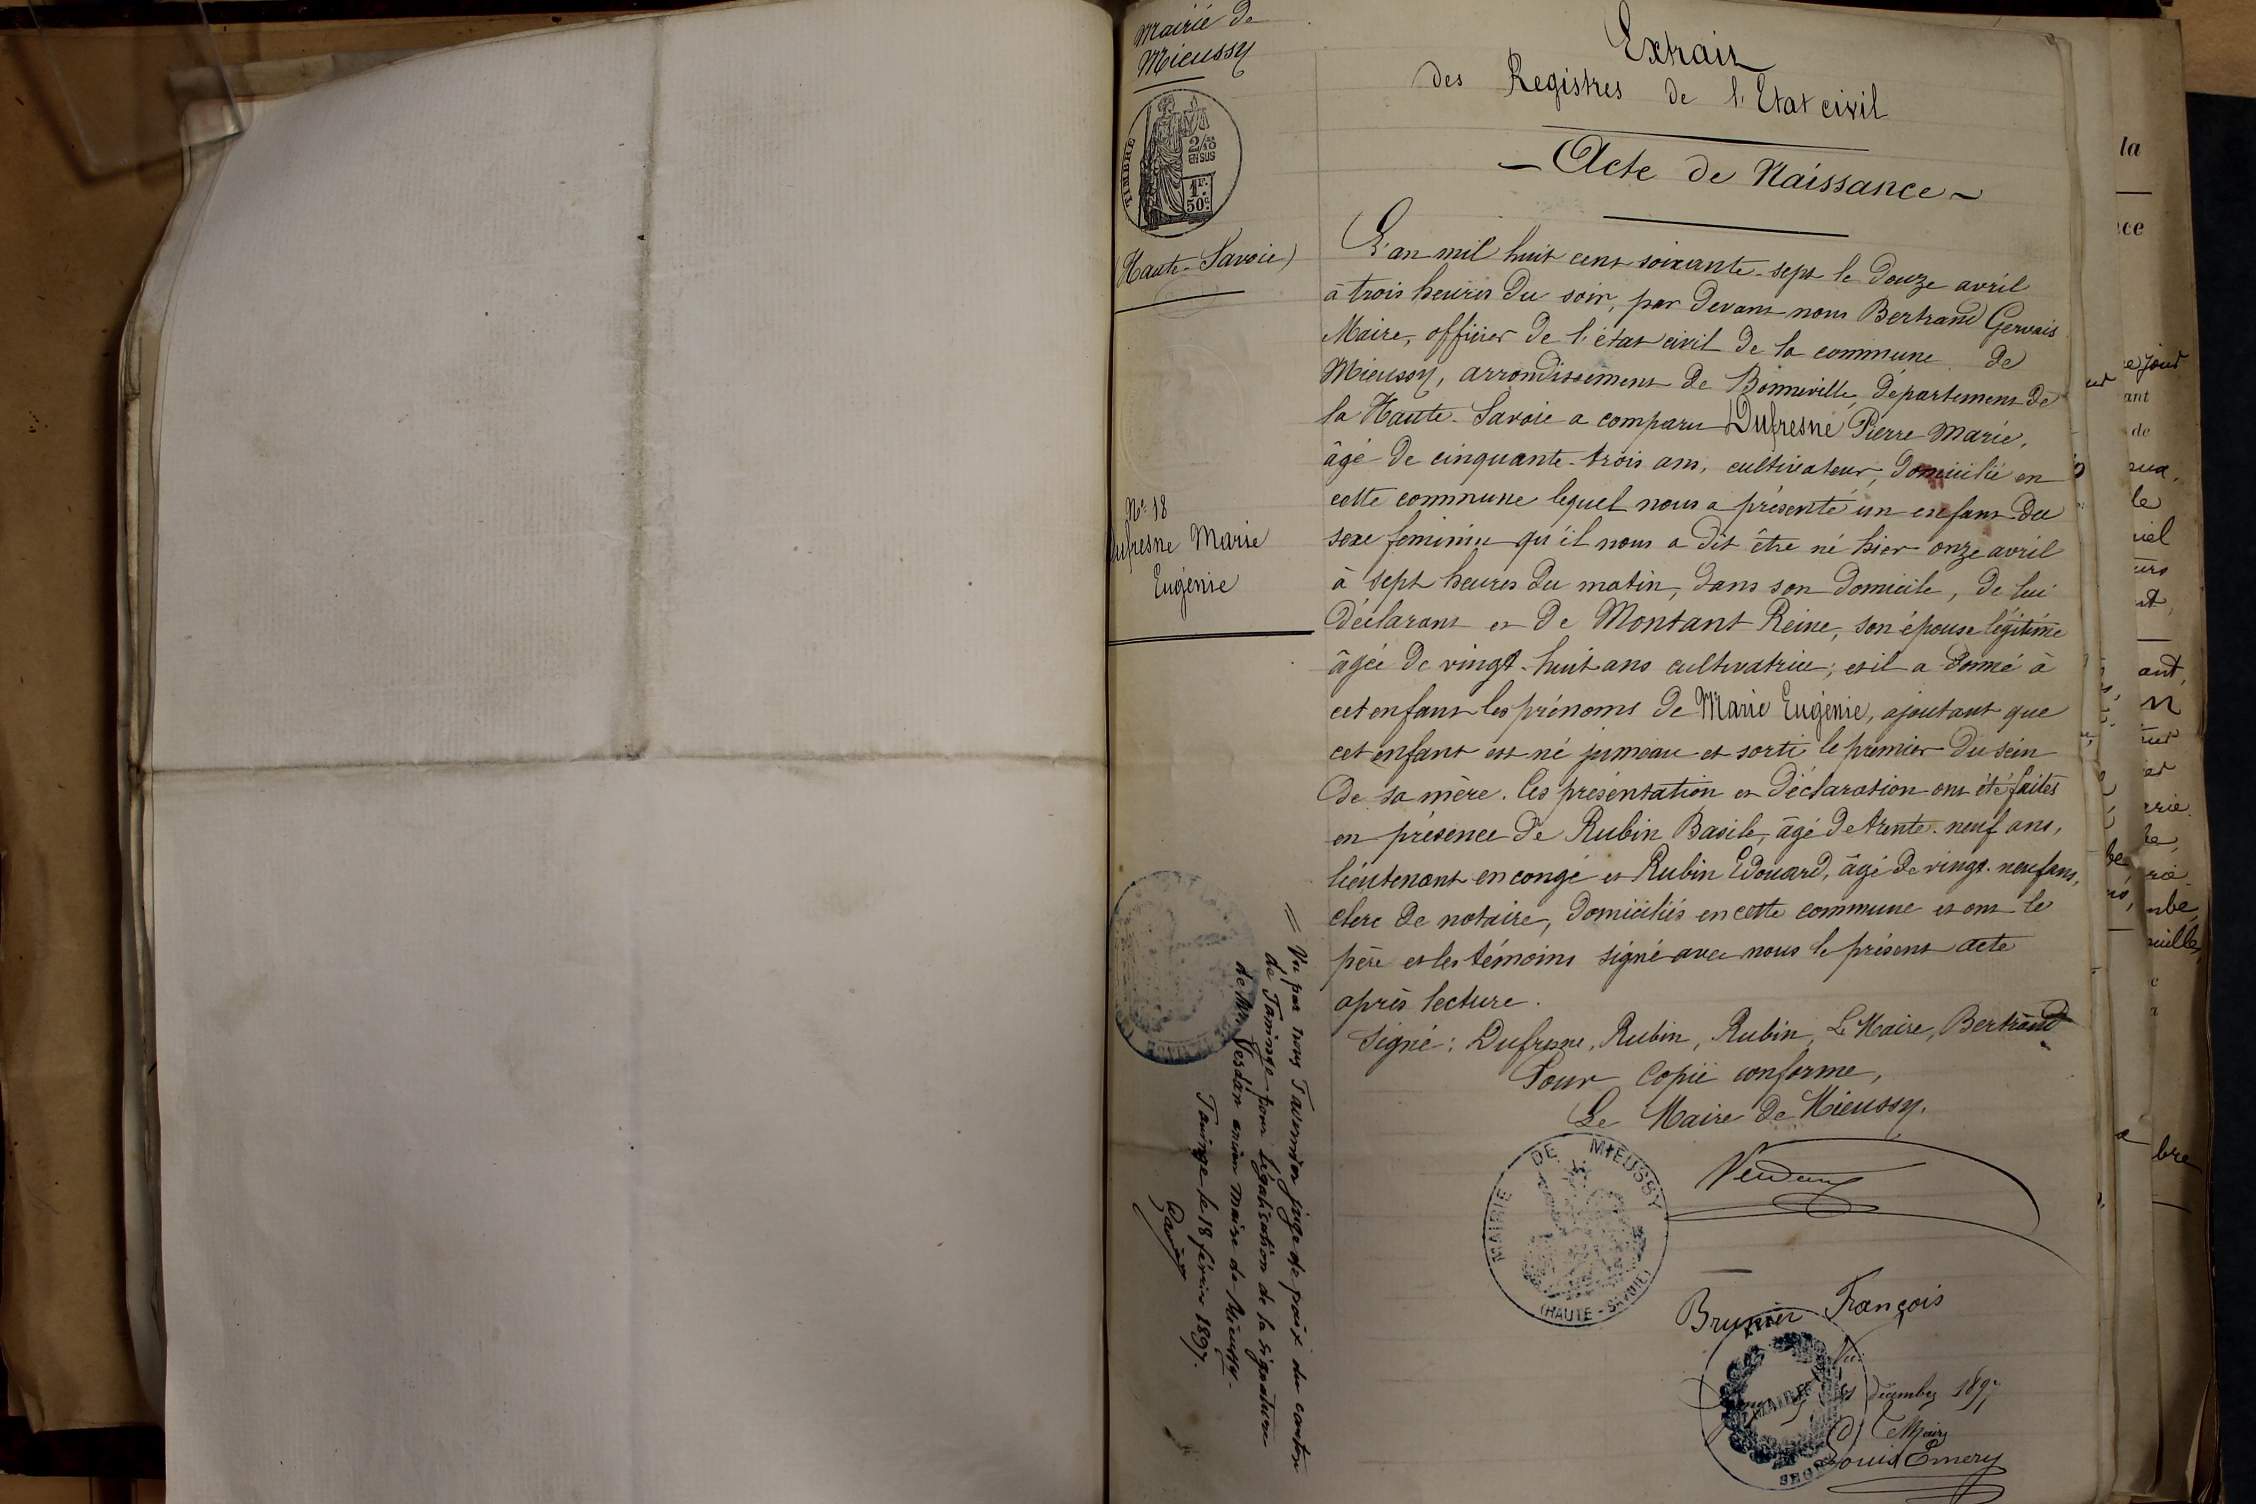 Mairie de
Mieussy
TIMBRE
2/10
EN SUS
1F.
50c.
(Haute-Savoie)
No 18
Dufresne Marie
Eugénie
Extrait
des Registres de l'Etat civil
— Acte de Naissance —
L'an mil huit cent soixante-sept le douze avril
à trois heures du soir, par devant nous Bertrand Gervais
Maire, officier de l'état civil de la commune de
Mieussy, arrondissement de Bonneville, département de
la Haute-Savoie a comparu Dufresne Pierre Marie,
âgé de cinquante-trois ans, cultivateur, domicilié en
cette commune lequel nous a présenté un enfant du
sexe feminin qu'il nous a dit être né hier onze avril
à sept heures du matin, dans son domicile, de lui
déclarant et de Montant Reine, son épouse légitime
âgée de vingt-huit ans cultivatrice; et il a donné à
cet enfant les prénoms de Marie Eugénie, ajoutant que
cet enfant est né jumeau et sorti le premier du sein
de sa mère. Ces présentation et déclaration ont été faites
en présence de Rubin Basile, âgé de trente-neuf ans,
lieutenant en congé et Rubin Edouard, âgé de vingt-neuf ans,
clerc de notaire, domiciliés en cette commune et ont le
père et les témoins signé avec nous le présent acte
après lecture.
Signé: Dufresne, Rubin, Rubin, Le Maire, Bertrand
Pour copie conforme,
Le Maire de Mieussy.
MAIRIE DE MIEUSSY
(HAUTE-SAVOIE)
Brunier François
Vu:
décembre 1897
Le Maire
Louis Emery
MAIRIE
Vu par nous Tavernier juge de paix du canton
de Taninge pour légalisation de la signature
de Mr. ancien Maire de Mieussy-
Taninge le 18 février 1897.